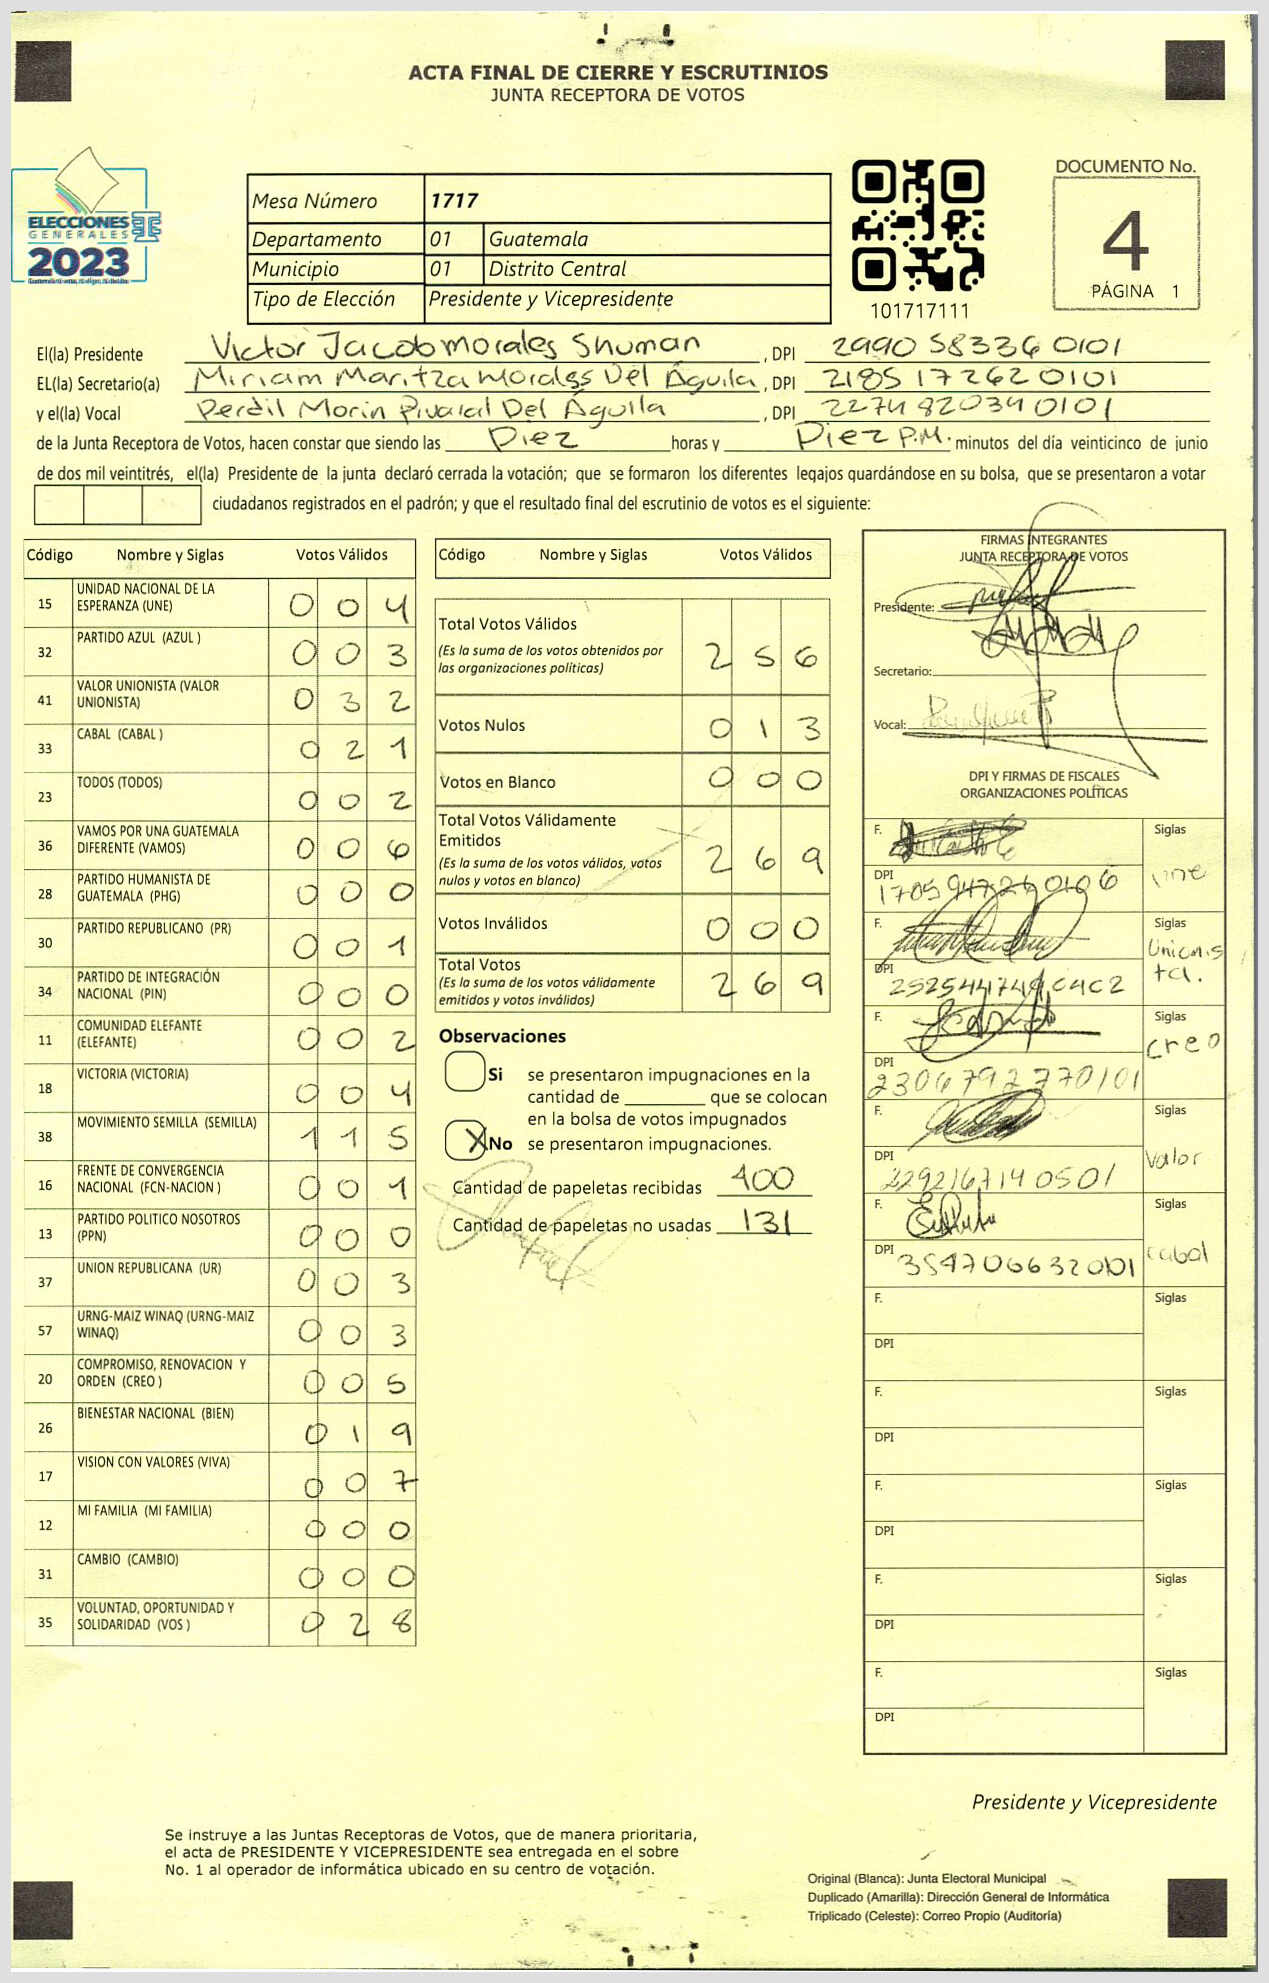 ACTA FINAL DE CIERRE Y ESCRUTINIOS
JUNTA RECEPTORA DE VOTOS
ELECCIONES
GENERALES
2023
Mesa Número 1717
Departamento 01 Guatemala
Municipio 01 Distrito Central
Tipo de Elección Presidente y Vicepresidente
101717111
DOCUMENTO No.
4
PÁGINA 1
El(la) Presidente Victor Jacob Morales Shuman, DPI 2990 58336 0101
EL(la) Secretario(a) Miriam Maritza Morales Del Águila, DPI 2185 17262 0101
y el(la) Vocal Perdil Morin Pivaral Del Águila, DPI 2274 82034 0101
de la Junta Receptora de Votos, hacen constar que siendo las Diez horas y Diez P.M. minutos del día veinticinco de junio
de dos mil veintitrés, el(la) Presidente de la junta declaró cerrada la votación; que se formaron los diferentes legajos guardándose en su bolsa, que se presentaron a votar
ciudadanos registrados en el padrón; y que el resultado final del escrutinio de votos es el siguiente:
Código Nombre y Siglas Votos Válidos
15 UNIDAD NACIONAL DE LA
ESPERANZA (UNE) 0 0 4
32 PARTIDO AZUL (AZUL ) 0 0 3
41 VALOR UNIONISTA (VALOR
UNIONISTA) 0 3 2
33 CABAL (CABAL ) 0 2 1
23 TODOS (TODOS) 0 0 2
36 VAMOS POR UNA GUATEMALA
DIFERENTE (VAMOS) 0 0 6
28 PARTIDO HUMANISTA DE
GUATEMALA (PHG) 0 0 0
30 PARTIDO REPUBLICANO (PR) 0 0 1
34 PARTIDO DE INTEGRACIÓN
NACIONAL (PIN) 0 0 0
11 COMUNIDAD ELEFANTE
(ELEFANTE) 0 0 2
18 VICTORIA (VICTORIA) 0 0 4
38 MOVIMIENTO SEMILLA (SEMILLA) 1 1 5
16 FRENTE DE CONVERGENCIA
NACIONAL (FCN-NACION ) 0 0 1
13 PARTIDO POLITICO NOSOTROS
(PPN) 0 0 0
37 UNION REPUBLICANA (UR) 0 0 3
57 URNG-MAIZ WINAQ (URNG-MAIZ
WINAQ) 0 0 3
20 COMPROMISO, RENOVACION Y
ORDEN (CREO ) 0 0 5
26 BIENESTAR NACIONAL (BIEN) 0 1 9
17 VISION CON VALORES (VIVA) 0 0 7
12 MI FAMILIA (MI FAMILIA) 0 0 0
31 CAMBIO (CAMBIO) 0 0 0
35 VOLUNTAD, OPORTUNIDAD Y
SOLIDARIDAD (VOS ) 0 2 8
Código Nombre y Siglas Votos Válidos
Total Votos Válidos
(Es la suma de los votos obtenidos por
las organizaciones políticas) 2 5 6
Votos Nulos 0 1 3
Votos en Blanco 0 0 0
Total Votos Válidamente
Emitidos
(Es la suma de los votos válidos, votos
nulos y votos en blanco) 2 6 9
Votos Inválidos 0 0 0
Total Votos
(Es la suma de los votos válidamente
emitidos y votos inválidos) 2 6 9
Observaciones
Si se presentaron impugnaciones en la
cantidad de ________ que se colocan
en la bolsa de votos impugnados
X No se presentaron impugnaciones.
Cantidad de papeletas recibidas 400
Cantidad de papeletas no usadas 131
FIRMAS INTEGRANTES
JUNTA RECEPTORA DE VOTOS
Presidente:
Secretario:
Vocal:
DPI Y FIRMAS DE FISCALES
ORGANIZACIONES POLÍTICAS
F. Siglas
DPI une
F. Siglas
Unionis
DPI ta.
F. Siglas
Creo
DPI 2306792770101
F. Siglas
DPI 2292167140501 Valor
F. Siglas
DPI cabal
F. Siglas
DPI
F. Siglas
DPI
F. Siglas
DPI
F. Siglas
DPI
F. Siglas
DPI
Presidente y Vicepresidente
Se instruye a las Juntas Receptoras de Votos, que de manera prioritaria,
el acta de PRESIDENTE Y VICEPRESIDENTE sea entregada en el sobre
No. 1 al operador de informática ubicado en su centro de votación.
Original (Blanca): Junta Electoral Municipal
Duplicado (Amarilla): Dirección General de Informática
Triplicado (Celeste): Correo Propio (Auditoría)